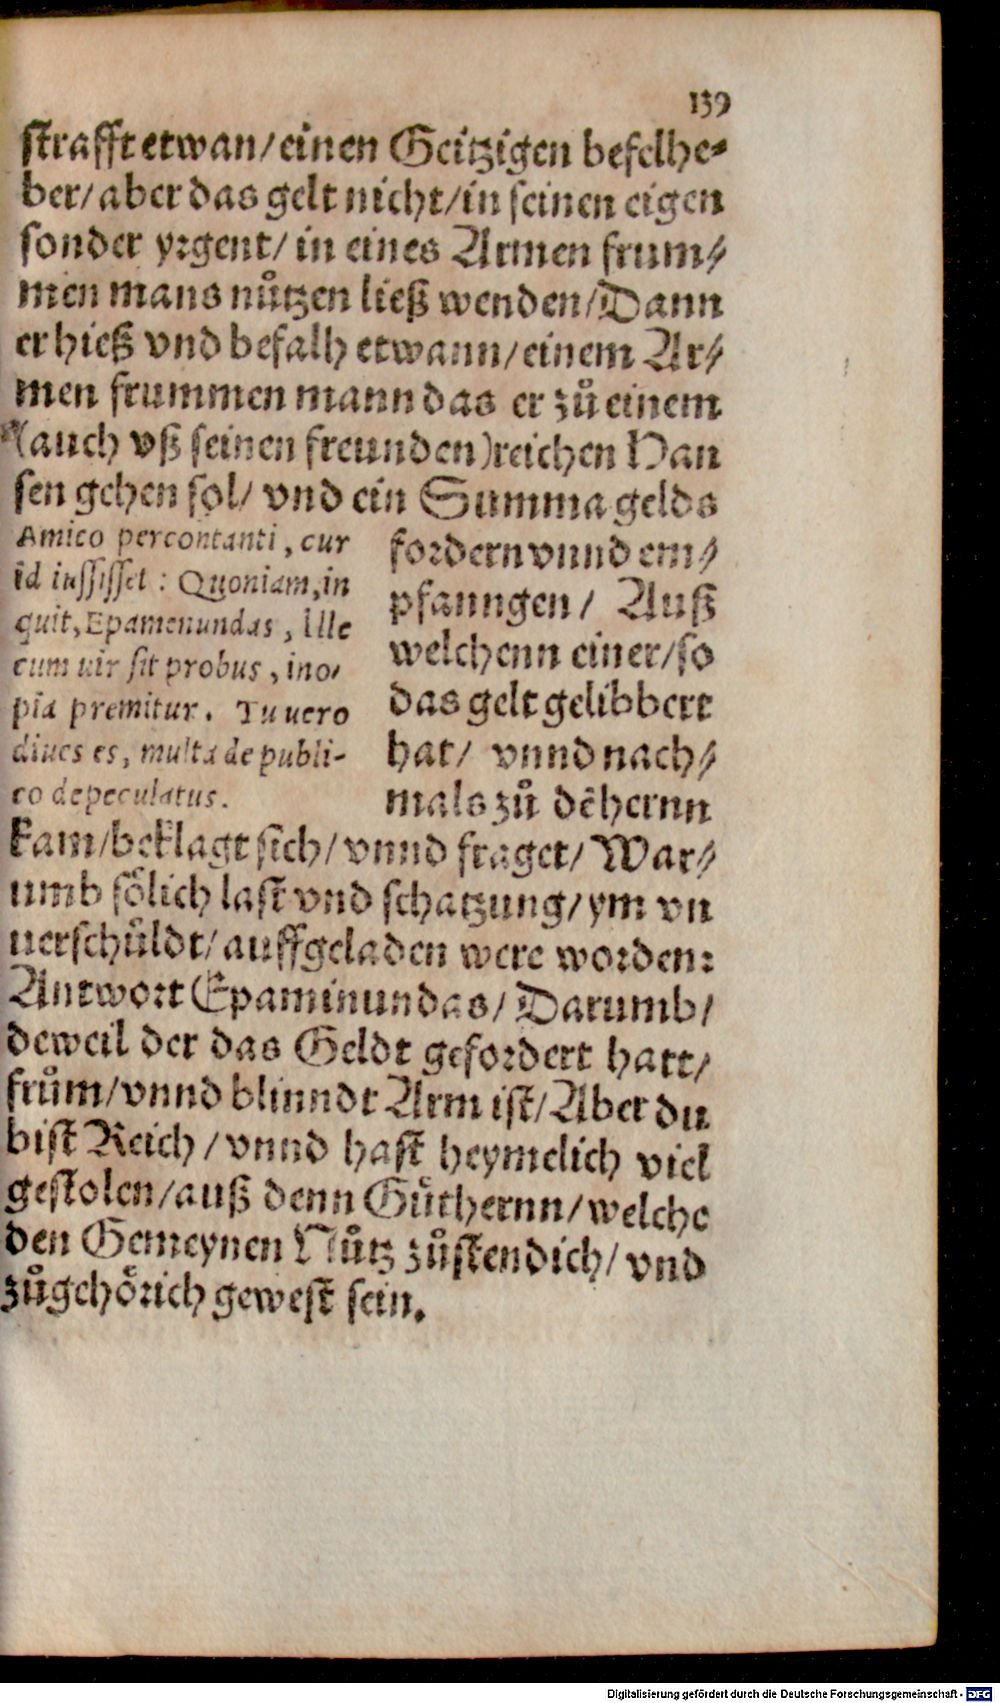 139
strafft etwan/einen Geitzigen befelhe⸗
ber/aber das gelt nicht/in seinen eigen
sonder yrgent/ in eines Armen frum⸗
men mans nůtzen ließ wenden/Dann
er hieß vnd befalh etwann/einem Ar⸗
men frummen mann das er zů einem
(auch vß seinen freunden)reichen Han
sen gehen sol/ vnd ein Summa gelds
Amico percontanti, cur
id iussisset: Quoniam, in
quit, Epamenundas, ille
cum uir sit probus, ino⸗
pia premitur. Tu uero
diues es, multa de publi-
co depeculatus.
fordern vnnd em⸗
pfanngen/ Auß
welchenn einer/so
das gelt gelibbert
hat/ vnnd nach⸗
mals zů dēhernn
kam/beklagt sich/vnnd fraget/War⸗
umb sölich last vnd schatzung/ym vn
uerschůldt/auffgeladen were worden:
Antwort Epaminundas/Darumb/
deweil der das Geldt gefordert hatt/
frům/vnnd blinndt Arm ist/Aber du
bist Reich/vnnd hast heymelich viel
gestolen/auß denn Gůthernn/welche
den Gemeynen Nůtz zůstendich/vnd
zůgehörich gewest sein.
Digitalisierung gefördert durch die Deutsche Forschungsgemeinschaft - DFG